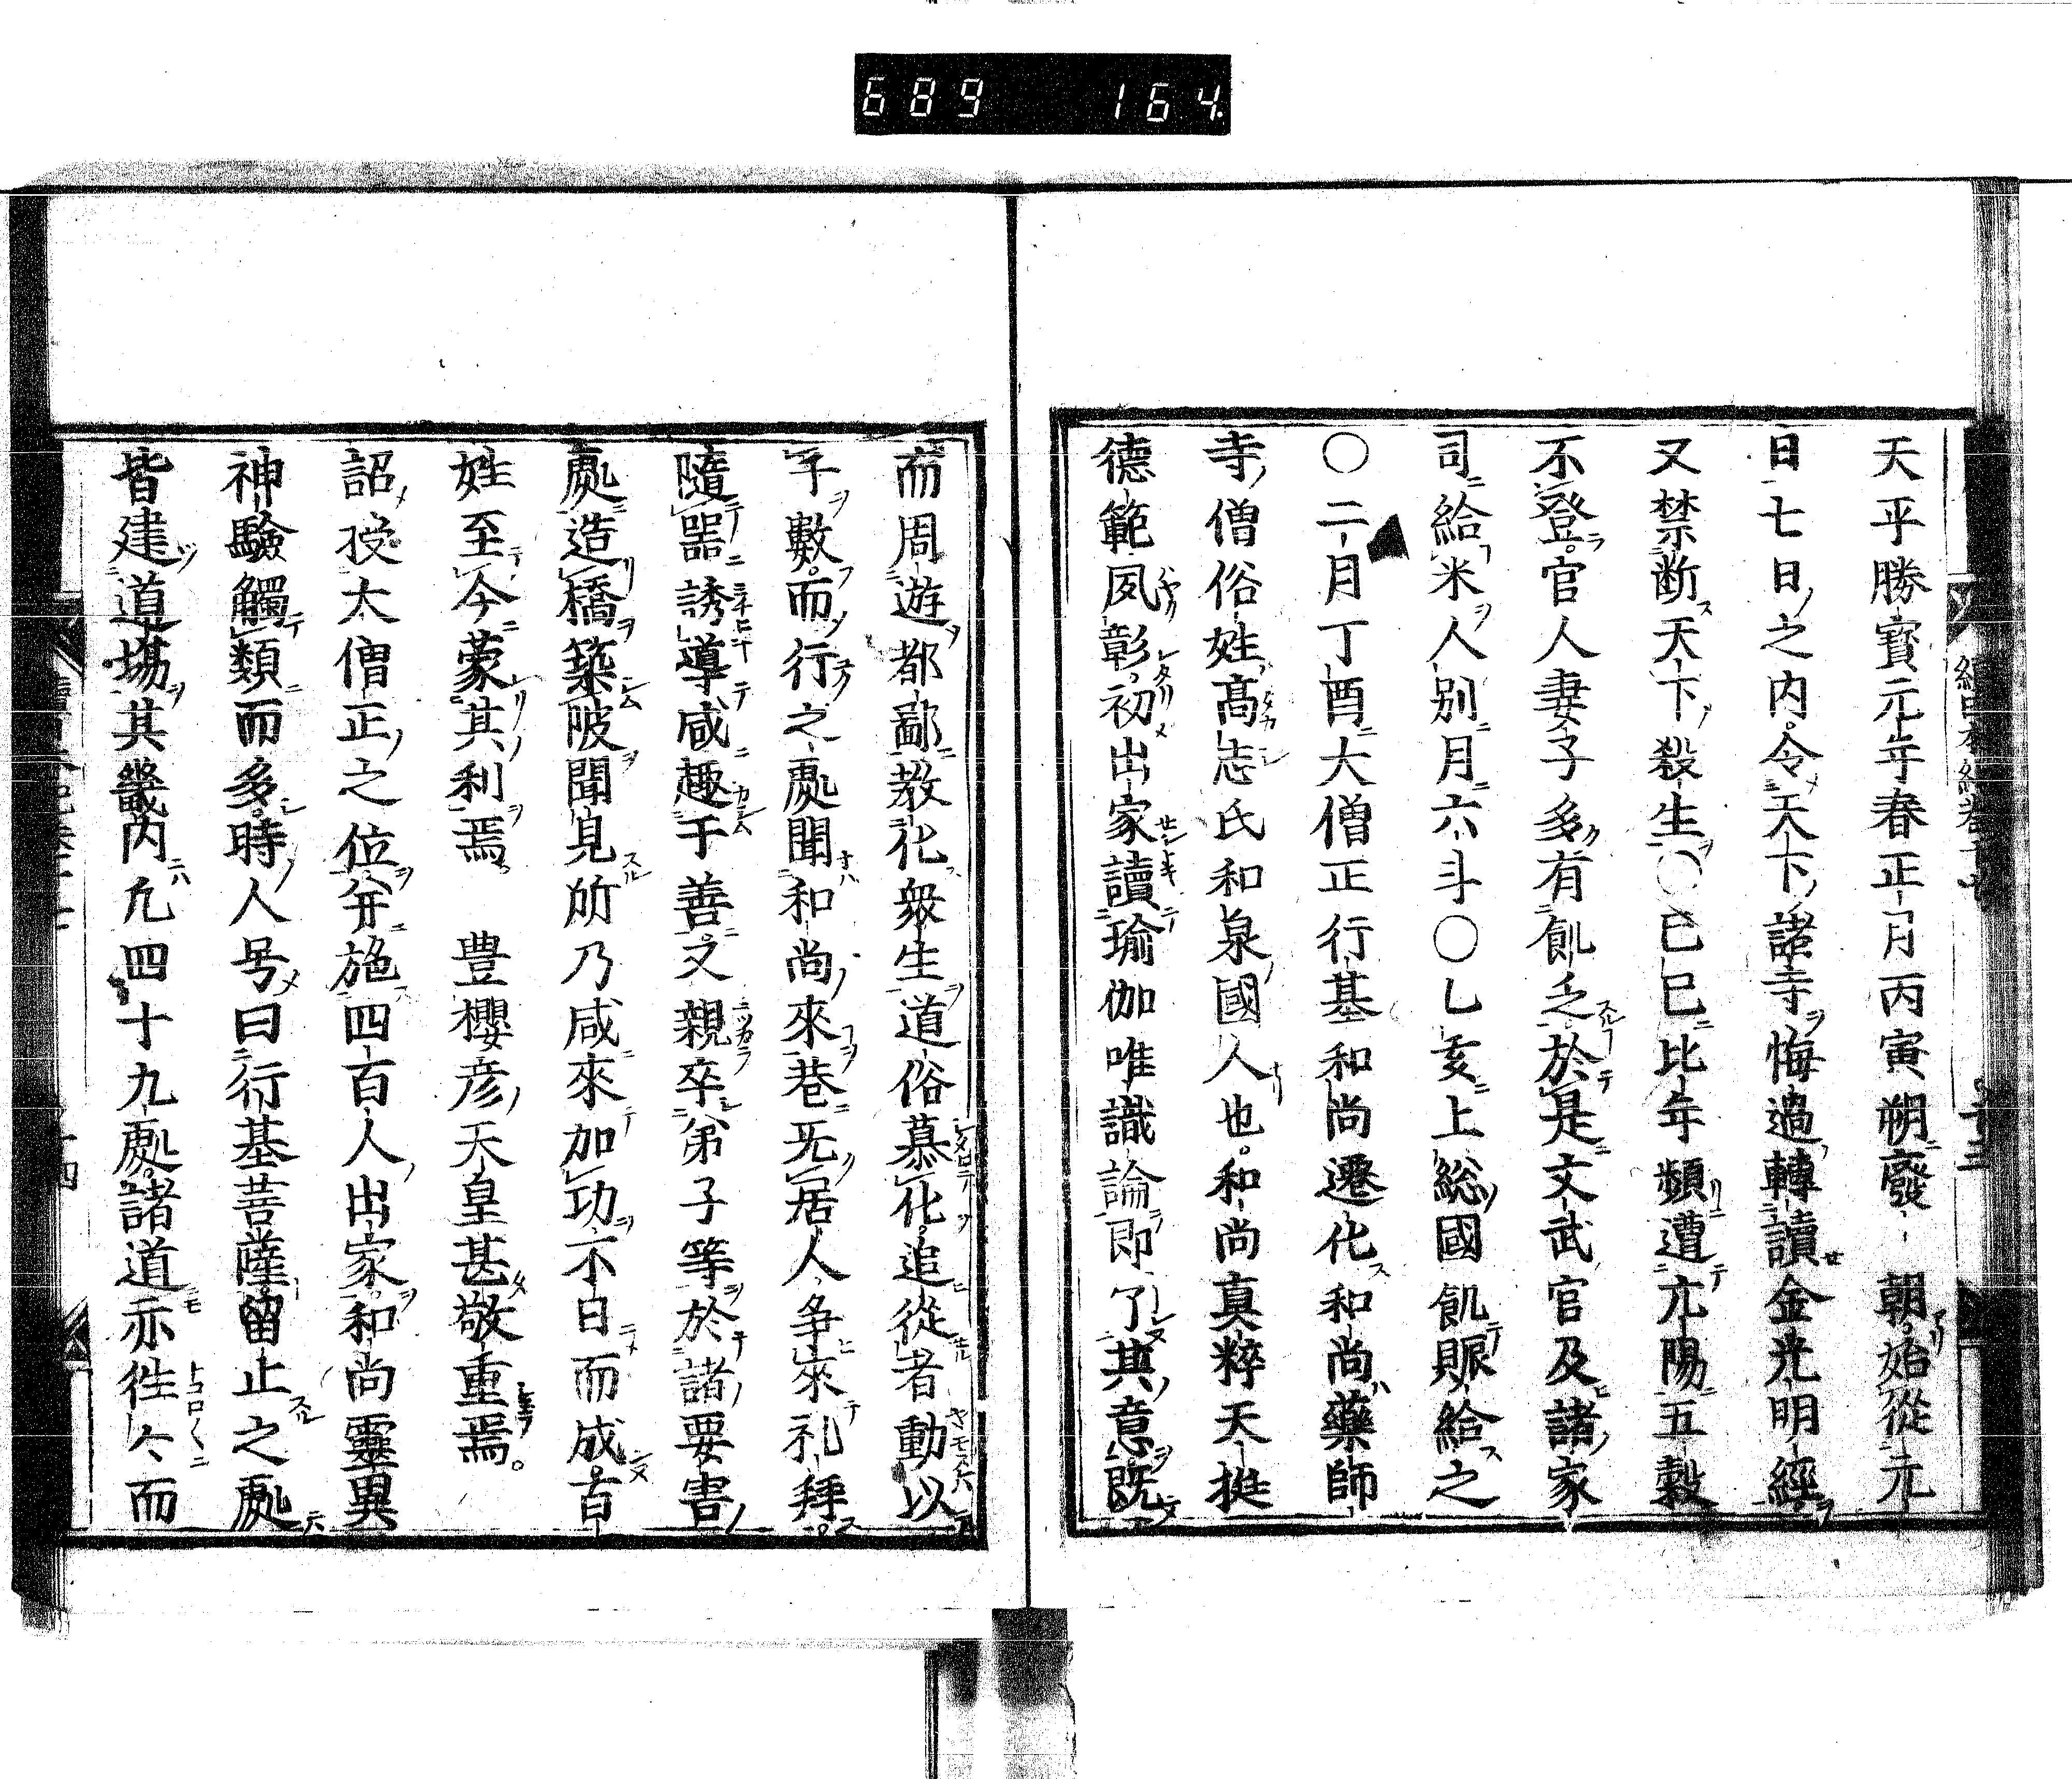 689 164
天平勝寳元年春正月丙寅朔廢朝始從元
日七日之内令天下諸寺悔過轉讀金光明經
又禁断天下殺生〇己巳比年頻遭亢陽五穀
不登官人妻子多有飢乏於是文武官及諸家
司給米人別月六斗〇乙亥上総國飢賑給之
〇二月丁酉大僧正行基和尚遷化和尚藥師
寺僧俗姓高志氏和泉國人也和尚真粹天挺
德範夙彰初出家讀瑜伽唯識論即了其意既
而周遊都鄙教化衆生道俗慕化追從者動以
千數而行之處聞和尚來巷无居人争來礼拜
隨噐誘導咸趣于善又親率弟子等於諸要害
處造橋築陂聞見所乃咸來加功不日而成百
姓至今蒙其利焉　豊櫻彦天皇甚敬重焉
詔授大僧正之位并施四百人出家和尚靈異
神驗觸類而多時人号曰行基菩薩留止之處
皆建道塲其畿内凢四十九處諸道亦徃々而